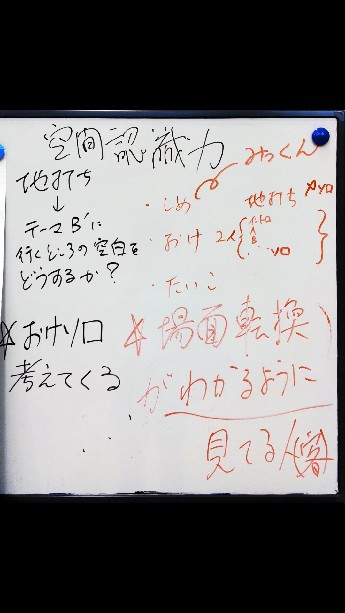 空間認識力
みっくん
地打ち
↓
テーマB'に
行くところの空白を
どうするか?
・しめ 地打ち ソロ
・おけ 2人 イントロ
A
B
ソロ
・たいこ
☆おけソロ
考えてくる
☆場面転換
がわかるように
見てる人